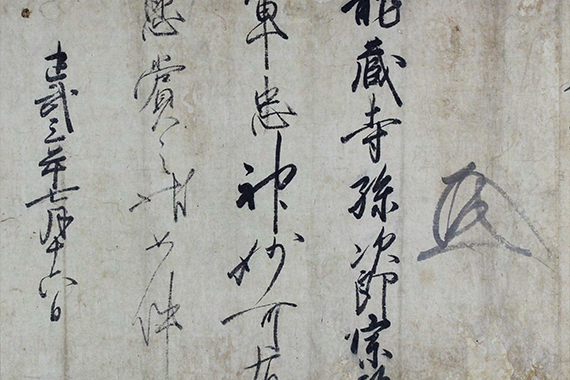 龍蔵寺孫次郎宗
軍忠神妙可有
恩賞之状如件
建武三年七月十六日